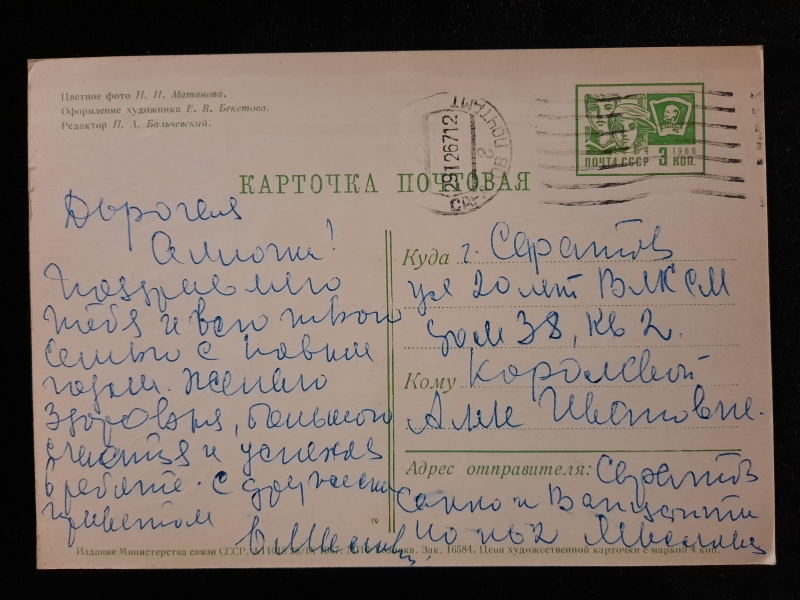 Цветное фото Н. И. Матанова.
Оформление художника Е. В. Бекетова.
Редактор П. А. Бальчевский.
ПОЧТАМТ
291267 12
ПОЧТА СССР 3 КОП.
1966
КАРТОЧКА ПОЧТОВАЯ
Дорогая
Аллочка!
Поздравляю
тебя и всю твою
семью с новым
годом. Желаю
здоровья, большого
счастья и успехов
в работе. С дружеским
приветом
Куда г. Саратов
ул 20 лет ВЛКСМ
дом 38, кв 2.
Кому Королевой
Алле Ивановне.
Адрес отправителя: Саратов
Сакко и Ванцетти
Издание Министерства связи СССР.
Зак. 16584. Цена художественной карточки с маркой 4 коп.